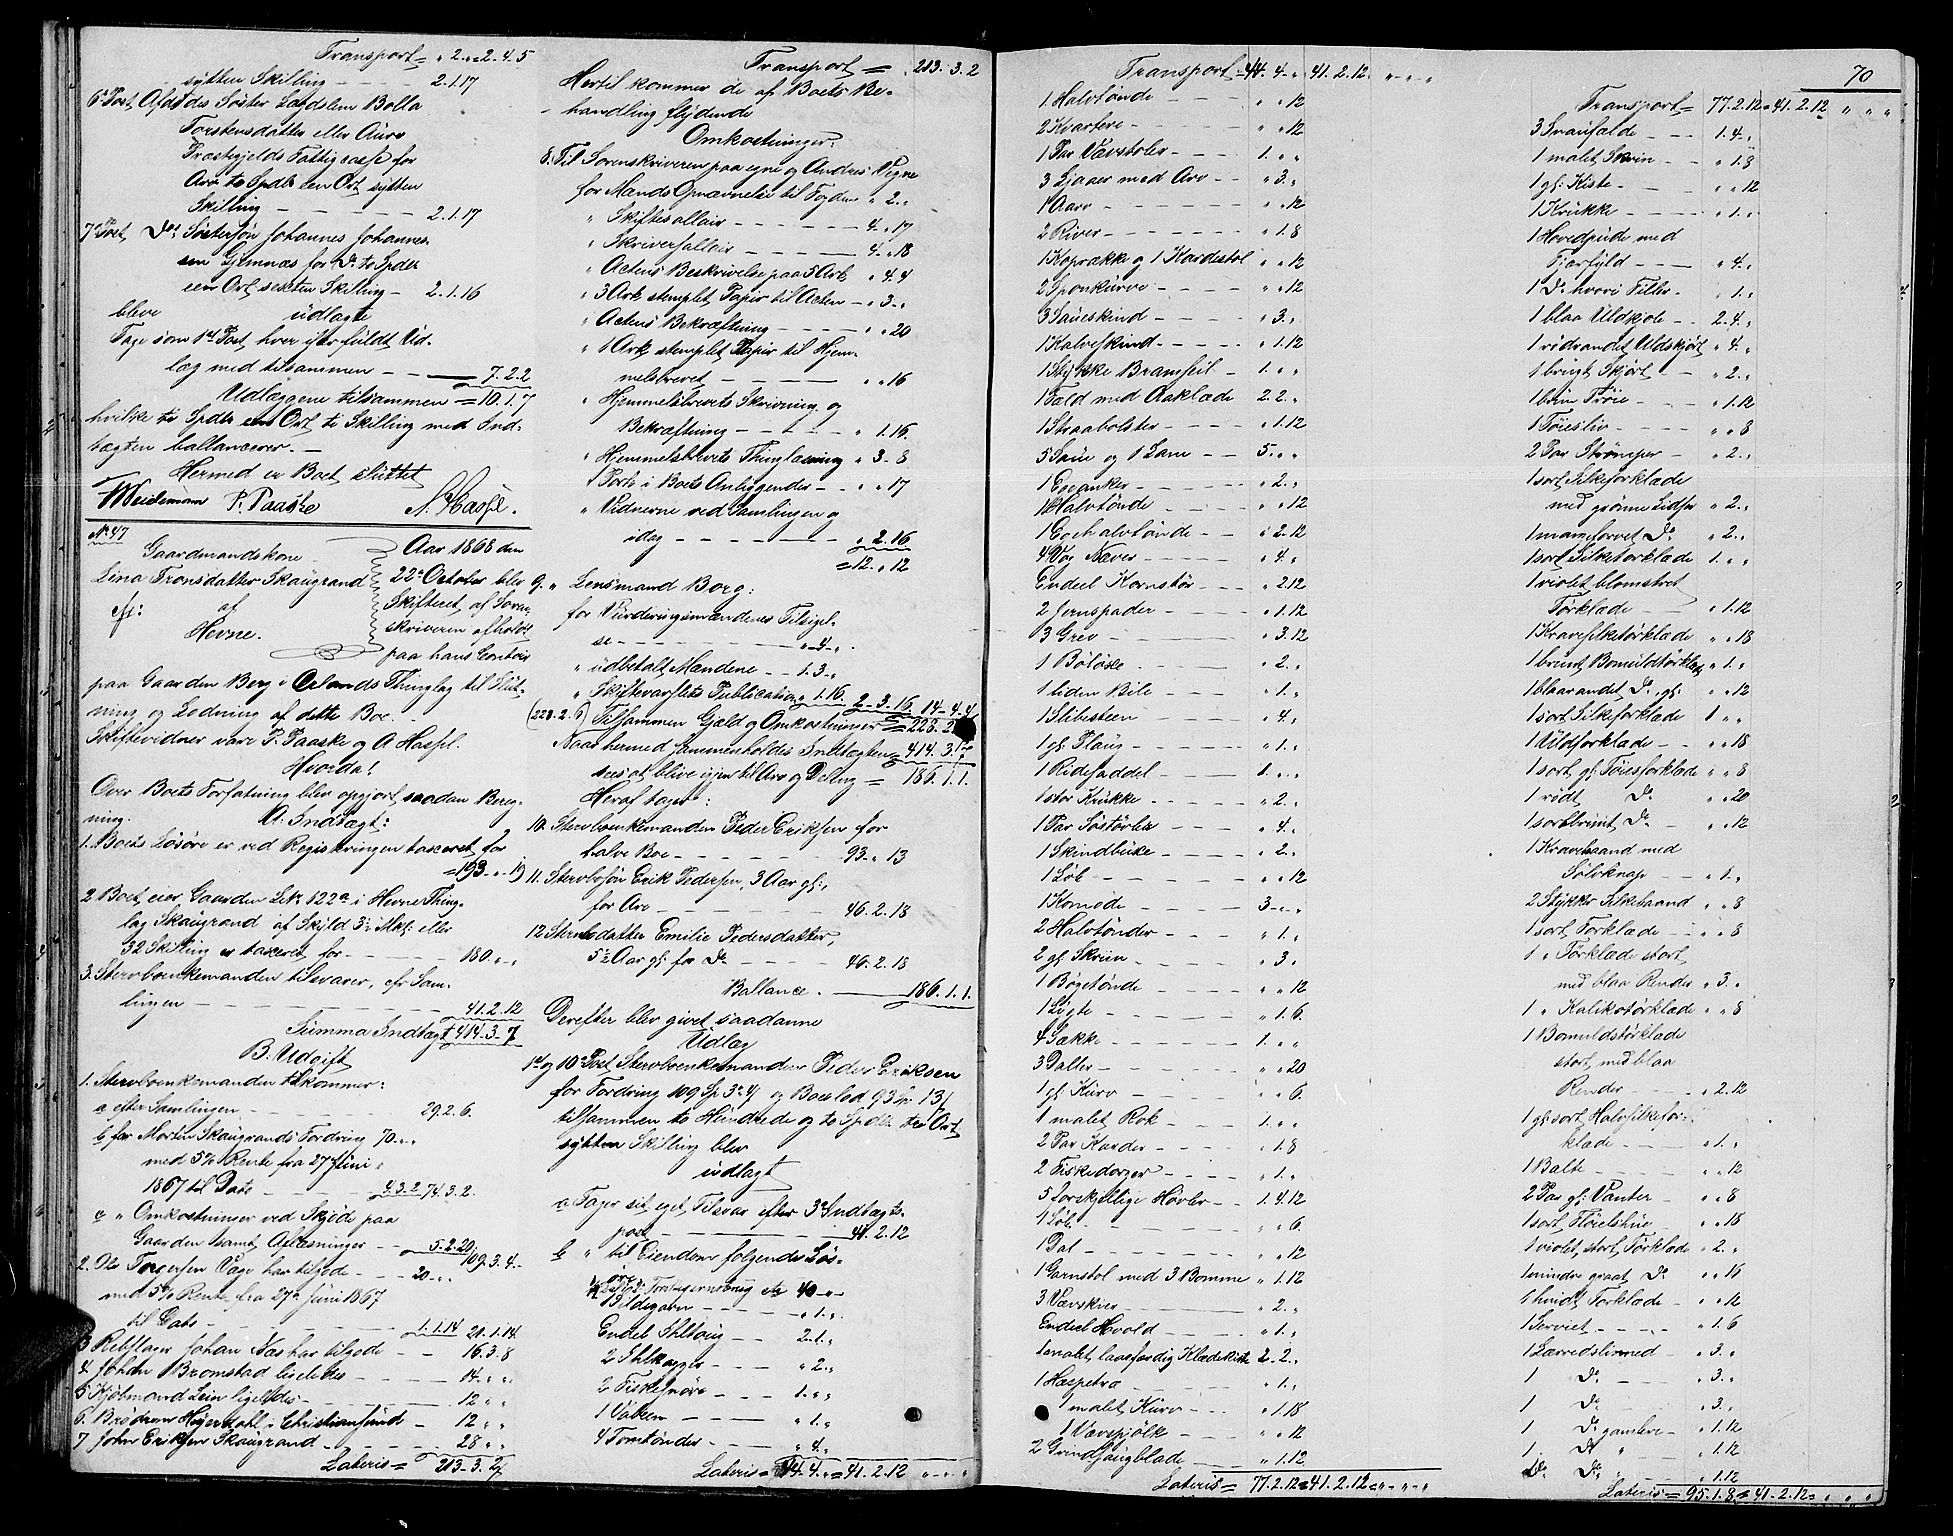 Transport = „ 2.„=2.4.5
sytten Skilling - - - 2.1.17
6te Post, Afdødes Søster Ladslem Bolla
Torstensdatter eller Aure
Præstegjelds Fattigcasse for
Arv to Spdlr een Ort sytten
Skilling - - - 2.1.17
7de Post, Do Søstersøn Johannes Johannes-
sen Gimnæs for Do to Spdlr
een Ort sexten Skilling - 2.1.16
bleve udlagte
Tage som 1ste Post hver for fuldt Ud-
læg med tilsammen - - 7.2.2
Udlæggene tilsammen = 10.1.7
hvilke ti Spdlr een Ort ti Skilling med Ind-
tægten ballancerer. -
Hermed er Boet sluttet
Weidemann P. Paaske A. Hassel.
No 47
Gaardmandskone
Lina Tronsdatter Skaugrand
af
Hevne.
Aar 1868 den
22de October blev
Skifteret af Soren-
skriveren afholdt
paa hans Contoir
paa Gaarden Berg i Ørlands Thinglag til Slut-
ning og Lodning af dette Boe. -
Skiftevidner vare P. Paaske og A Hassel.
Hvorda!
Over Boets Forfatning blev opgjort saadan Bereg-
ning. A. Indtægt:
1. Boets Løsøre er ved Registreringen taxeret for
= 193 - „ - 19
2 Boet eier Gaarden Lt. 122a i Hevne Thing-
lag Skaugrand af Skyld 3½ Mkl. eller
32 Skilling er taxeret for - - - 180.„.„
3. Stervboenkemanden tilsvarer, cfr Sam-
lingen - - - 41.2.12
Summa Indtægt 414-3-7
B. Udgift
1. Stervboenkemanden tilkommer:
a efter Samlingen - - - 29.2.6.
b for Morten Skaugrands Fordring 70.„.„
med 5% Rente fra 27 Juni
1867 til Dato - - 4.3.2 74.3.2.
c „ Omkostninger ved Skjøde paa
Gaarden samt Aflæsninger - - 5.2.20 109.3.4.-
2. Ole Torgersen Vage har tilgode - - 20 -„.„
med 5% Rente fra 27de Juni 1867
til Dato - - - 1.1.14 21.1.14
3 Rebslager Johan Aas har tilgode - - 16.3.8
4 Johan Bromstad ligeledes - - - 14.„.„
5 Kjøbmand Lein ligeledes - - - 12 „ „
6. Brødrene Heyerdahl i Christiansund - 12 „ „
7 John Eriksen Skaugrand - - - 28 „ „
Lateris = 213-3-2
Transport = „ 213.3.2
Hertil kommer de af Boets Be-
handling flydende
Omkostninger:
8. Til Sorenskriveren paa egne og Andres Vegne
for Mands Opnævnelse til Fogden „ 2.„
„ Skiftesallair - - - 4.„17
„ Skriversallair - - - 4.„18
„ Actens Beskrivelse paa 3 Ark „ 4.4
„ 3 Ark stemplet Papir til Acten - „ 3-„
„ Actens Bekræftning - - - „ „ 20
„ 1 Ark stemplet Papir til Hjem-
melsbrevet - - - „ „ 16
„ Hjemmelsbrevets Skrivning og
Bekræftning - - - „ 1.16.
„ Hjemmelsbrevets Thinglæsning „ 3-8
„ Porto i Boets Anliggender - „ „ 17
„ Vidnerne ved Samlingen og
idag - - - „ 2.16
=12.„12
9. „ Lensmand Borg:
for Vurderingsmændenes Tilsigel-
se - - - „-4-„.
„ udbetalt Mændene - - 1.3.„
„ Skiftevarslets Publication „ 1.16. 2-3.16 14-4-4
(228.2.6) Tilsammen Gjæld og Omkostninger = 228.2
Naar hermed sammenholdes Indtægten = 414.3.7
sees at blive igjen til Arv og Deling = 186.1.1.
Heraf tager:
10. Stervboenkemanden Peder Eriksen for
halve Boe - - - 93.„13
11. Stervbosøn Erik Pedersen, 3 Aar gl.,
for Arv - - - 46.2.18
12 Stervbodatter Emilie Pedersdatter,
5½ Aar gl. for Do - - - 46.2.18
Ballance. - 186.1.1.
Derefter blev givet saadanne
Udlæg
1ste og 10de Post, Stervboenkemanden Peder Eriksen
for Fordring 109 Sp 3 o 4 og Boeslod 93 Sp 13
tilsammen to Hundrede og to Spdlr tre Ort
sytten Skilling blev
udlagt
a Tager sit eget Tilsvar efter 3die Indtægts-
post - - - 41.2.12
b „ til Eiendom følgende Løs-
øre
40 -„-
1 Sildegarn - - - „ 1.„
Endel Ihltøug - - 2.1.„
2 Ihlkagger - - „ 2.„
2 Fiskesnøre - - 1.„.„
1 Vaken - - „ 1.„
4 Tomtønder - - „ 4.„
Lateris = 44.4.„=41.2.12 „-„-„
Transport =44.4.„ 41.2.12. „-„-„
1 Halvtønde - - „ „ 12
2 Kvartere - - „ „ 12
1 Par Vævstoler - - 1.„ „
3 Ljaaer med Arv - - „ 3.„
1 Aare - - „ „ 12
2 River - - „ 1.8
1 Koprække og 1 Kardestol „ „ 12
2 Sponkurve - - „ „ 12
3 Saueskind - - „ 3.„
1 Kalveskind - - „ 1.12
1 Stykke Bramseil - - 1.„ „
1 Fæld med Aaklæde 2.2.„
1 Straabolster - - „ 1.12
5 Saue og 1 Lam - - 5.„ „
1 Egeanker - - „ 2.„
1 Halvtønde - - „ „ 12
1 Egehalvtønde - - „ 2.12
4 Vog Næver - - „ 4.„
Endeel Kornstør - - „ 2.12
2 Jernspader - - „ 1.12
3 Grev - - „ 3.12
1 Bøløxe - - „ 2.„
1 liden Bile - - „ 1.„
1 Slibesteen - - „ 4.„
1 gl. Plaug - - „ 1.„
1 Ridesaddel - - 1.„.„
1 stor Krukke - - „ 2.„
1 Par Søstøvler - - „ 4.„
1 Skindbuxe - - „ 2.„
1 Løb - - „ „ 12
1 Komode - - 3-„.„
2 Halvtønder - - „ 1.„
2 gl Skriin - - „ 3.„
1 Bøgetønde - - „ „ 12
1 Løgte - - „ 1.6
4 Sække - - 1.„ „
3 Daller - - „ „ 20
1 gl Kurv - - „ „ 6.
1 malet Rok - - 1.„.„
2 Par Karder - - „ 1.8
2 Fiskedorger - - „ 1.„
5 forskjellige Høvler - - 1.4.12
1 Løb - - „ „ 6.
1 Dal - - „ „ 12
1 Garnstol med 3 Bomme „ 1.12
3 Vævskier - - „ 2.„
Endeel Hvold - - „ 1.„
1 malet laasfærdig Klædekiste 2.2.„
1 Hæspetræ - - „ 1.„
1 malet Kurv - - „ 1.18
1 Vævspjølk - - „ „ 12
2 Grindsaugblade - - „ 1.12
Lateris = 77.2.12=41.2.12=„-„-„
70
Transport = 77.2.12=41.2.12 „ „ „
3 Snaufælde - - 1.4.„
1 malet Skrin - - „ 1.8
1 gl. Kiste - - „ „ 12
1 Krukke - - „ 1.„
1 Hovedpude med
Fjærfyld - - „ 4.„
1 Do hvori Filler - „ 1.„
1 blaa Uldkole - - 2.4.„
1 rødrandet Uldskjørt „ 4.„
1 brugt Skjørt - - „ 2.„
1 brun Trøie - - „ 1.12
1 Trøieliv - - „ „ 8
2 Par Strømper - - „ 2.„
1 sort Silkeforklæde
med grønne Lidser „ 2.„
1 mangefarvet Do „ 2.„
1 sort Silketørklæde 1.„ „
1 violet blomstret
Tørklæde - - „ 1.12
1 Kravesilketørklæde „ „ 18
1 brunt Bomuldtørklæde „ 1.„
1 blaarandet Do gl: „ „ 12
1 sort Silkeforklæde 1 „ „
1 Uldforklæde - - „ „ 18
1 sort gl. Tøiesforklæde „ „ 8
1 rødt Do „ „ 20
1 sortbrunt Do - „ „ 12
1 Kravebaand med
Sølvknap - - „ 1.„
2 Stykker Silkebaand „ „ 8
1 sort Forklæde - - „ „ 8
1 „ Tørklæde stort
med blaa Render „ 3.„
1 „ Kalikotørklæde „ „ 8
1 Bomuldstørklæde
stort med blaa
Render - - „ 2.12
1 gl: sort Halvsilkefor-
klæde - - „ 1.„
1 Balte - - „ „ 12
2 Par gl: Vanter - „ „ 8
1 sort Fløielshue - „ „ 18
1 violet, stort Tørklæde „ 2.„
1 mindre graat Do „ „ 16
1 hvidt Forklæde - „ „ 12
1 Serviet - - „ 1.6
1 Lærredslinned - „ 3.„
1 Do - „ 3.„
1 Do - „ 3.„
1 Do gamlere - „ 1.12
1 Do „ „ 1.12
Do Do „ 1.12
Lateris = 95.1.8=41.2.12=„ „ „